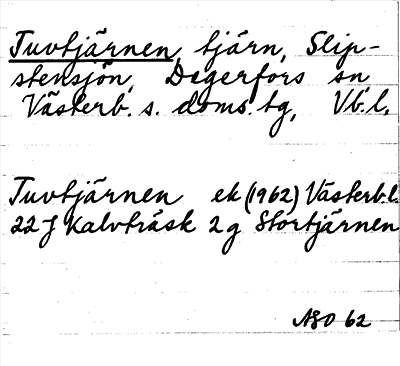 Tuvtjärnen, tjärn, Slip-
stensjön, Degerfors sn,
Västerb. s. doms. tg, Vb.l.
Tuvtjärnen ek (1962) Västerb.l.
22 J Kalvträsk 2 g Stortjärnen
ASO 62